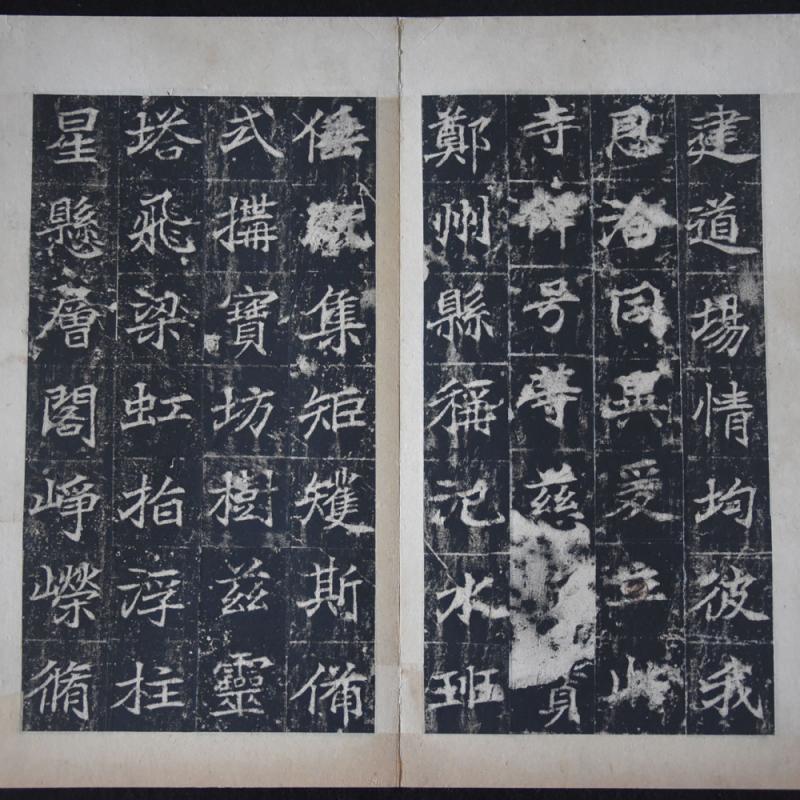 建道場情均彼我
恩洽同異爰立此
寺号等慈
鄭州縣稱汜水班
倕既集矩矱斯備
式搆寶坊樹兹靈
塔飛梁虹指浮柱
星懸層閣崢嶸脩